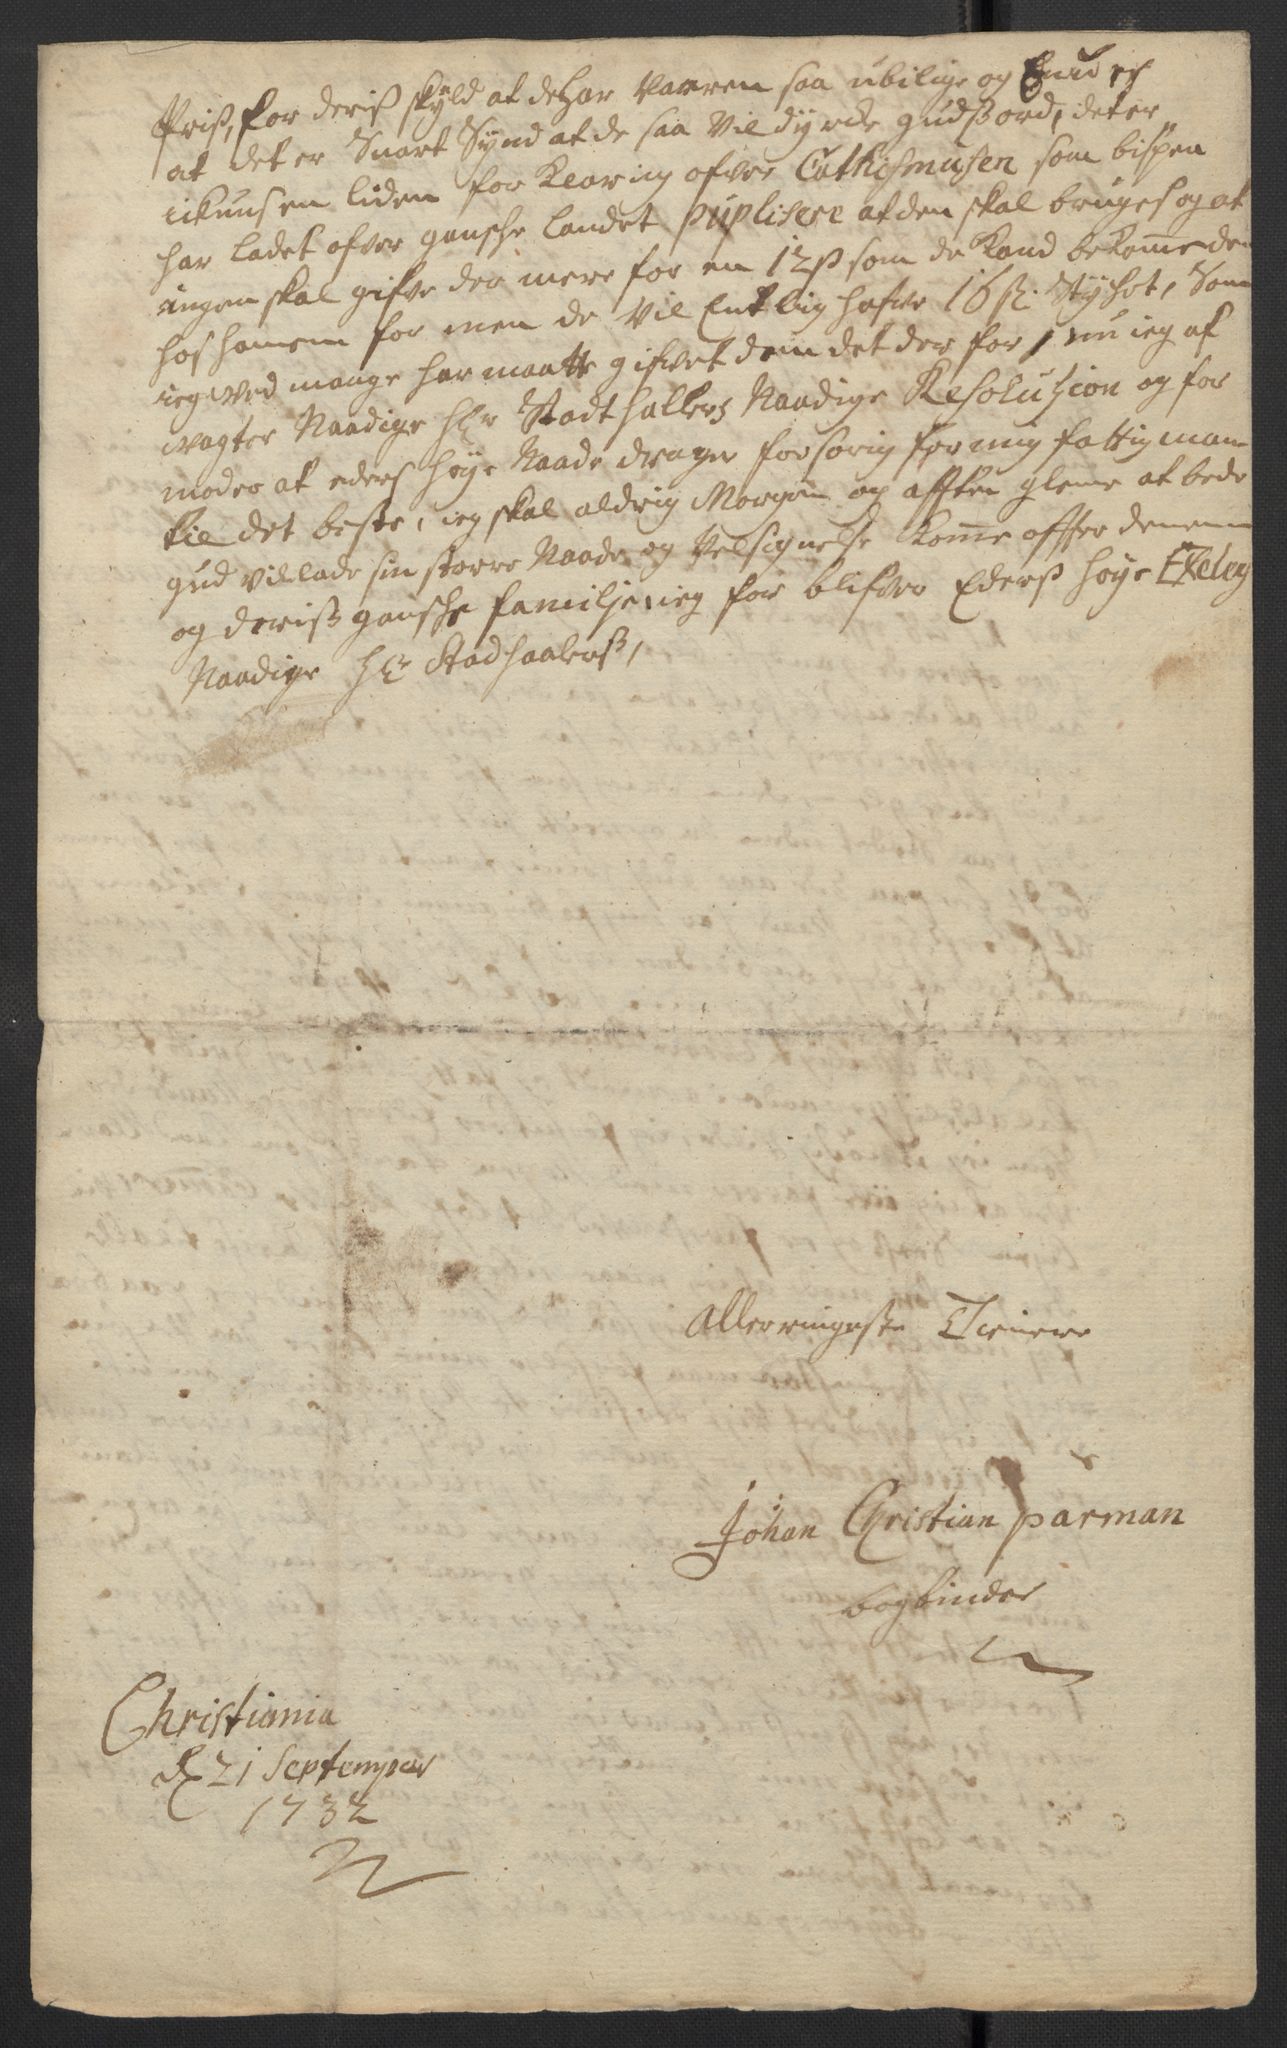 Priss, for deriss skÿld at de har varren saa ubilige og
at det er Snart Synd at de saa vil dÿrcke gudssord, det er
ickuns en liden for Klaring ofver Cathismusen som bispen
har ladet ofver gansche landet puplisere at den skal bruges og at
ingen skal gifve der mere for en 12 ss som de kand bekomme den
hos hannem for men de vil Entlig hafve 16 ss. Stÿchet, Som
ieg ved mange har maatte gifvet dem det der for, nu ieg af
vagter Naadige Hr Stadthallers Naadige Resolutzion og for
moder at eders höÿe Naade drager forsorig for mig fattig man
til det beste, ieg skal aldrig Morgen og afften gleme at bede
gud vil lade sin storre Naade og Velsignelse komme offver dennem
og deriss gansche familje, ieg for blifver Ederss höÿe Exelentz
Naadige Hr Stadhaalerss,
Allerringeste Tienere
Johan Christian parman
bogbinder
Christiania
d 21 Septemper
1732